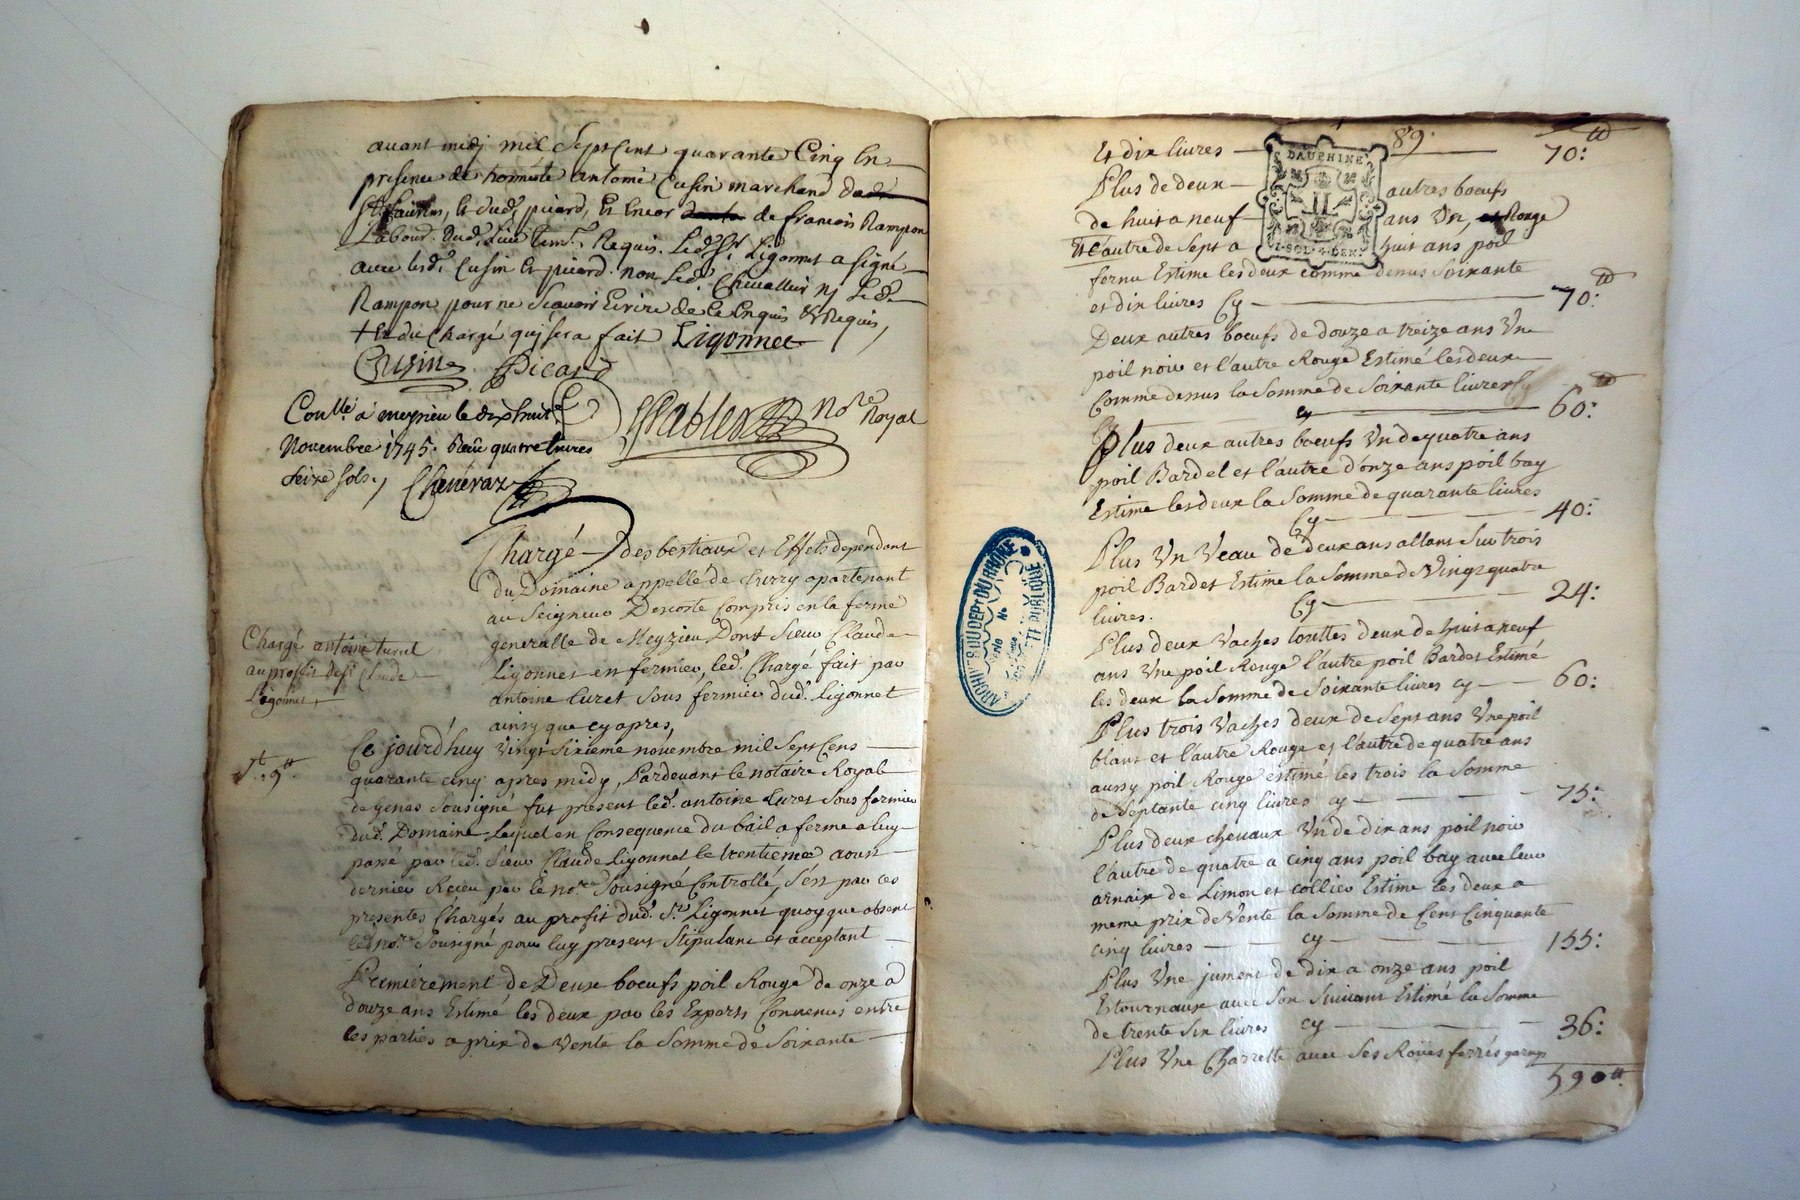 avant midj mil Sept Cent quarante Cinq En
presence de honneste antoine Cusin marchand
et dud. picard, Et Encor de francois Rampon
Labour. dud. Lieu tem. Requis. Led. Sr. Ligonnet a signé
avec lesd. Cusin Et picard. non Led. Chevallier nj Led.
Rampon pour ne Scavoir Ecrire de ce Enquis & Requis,
+ Et du Chargé quj sera fait Ligonnet
Cusin Picard
Coullé a meyzieu le dixhuit
Novembre 1745. Receu quatre livres
seize sols., Cheneraz
Nore Royal
Chargé des bestiaux et Effets dependant
du Domaine appellé de Curzy apartenant
au Seigneur Descoste Compris en la ferme
generalle de Meyzieu Dont Sieur Claude
Ligonnet en fermier, led. Chargé fait par
Antoine Curet Sous fermier dud. Ligonnet
ainsy que cy apres,
Chargé antoine
au proffit de Sr. Claude
Ligonnet
Ce jourd'huy Vingt Sixieme novembre mil Sept Cens
quarante cinq apres midy, Pardevant le notaire Royal
de genas Sousigné fut present led. antoine Curet Sous fermier
dud. Domaine Lequel en Consequence du bail a ferme a luy
passé par led. Sieur Claude Ligonnet le trentieme aoust
dernier Receu par le nore. Sousigné Controllé, S'est par ces
presentes Chargés au profit dud. Sr. Ligonnet quoy que absent
led. nore. Sousigné pour luy present Stipulant et acceptant
Premierement de Deux boeufs poil Rouge de onze a
douze ans Estimé les deux par les Experts Convenus entre
les parties a prix de Vente la Somme de Soixante
89.
Et dix livres 70:
DAUPHINE
Plus de deux autres boeufs
de huit a neuf ans Un, Rouge
Et l'autre de Sept a huit ans poil
fernu Estime les deux comme denus Soixante
et dix livres Cy 70:
Deux autres boeufs de douze a treize ans Une
poil noir et l'autre Rouge Estimé les deux
Comme denus la Somme de Soixante livres Cy
cy 60:
Plus deux autres boeufs Un de quatre ans
poil Bardel et l'autre d'onze ans poil bay
Estime les deux la Somme de quarante livres
Cy 40:
Plus Un Veau de deux ans allant Sur trois
poil Bardet Estime la Somme de Vingt quatre
livres. Cy 24:
Plus deux Vaches deux de huit a neuf
ans Une poil Rouge l'autre poil Bardet Estimé
les deux la Somme de Soixante livres cy 60:
Plus trois Vaches deux de Sept ans Une poil
blanc et l'autre Rouge et l'autre de quatre ans
aussy poil Rouge estimé les trois la Somme
de Septante cinq livres cy 75:
Plus deux chevaux Un de dix ans poil noir
l'autre de quatre a cinq ans poil bay avec leur
arnaix de Limon et collier Estime les deux a
meme prix de Vente la Somme de Cent Cinquante
cinq livres cy 155:
Plus Une jument de dix a onze ans poil
Estournaux avec Son Suivant Estimé la Somme
de trente Six livres cy 36:
Plus Une Charrette avec Ses Roues ferrés
590